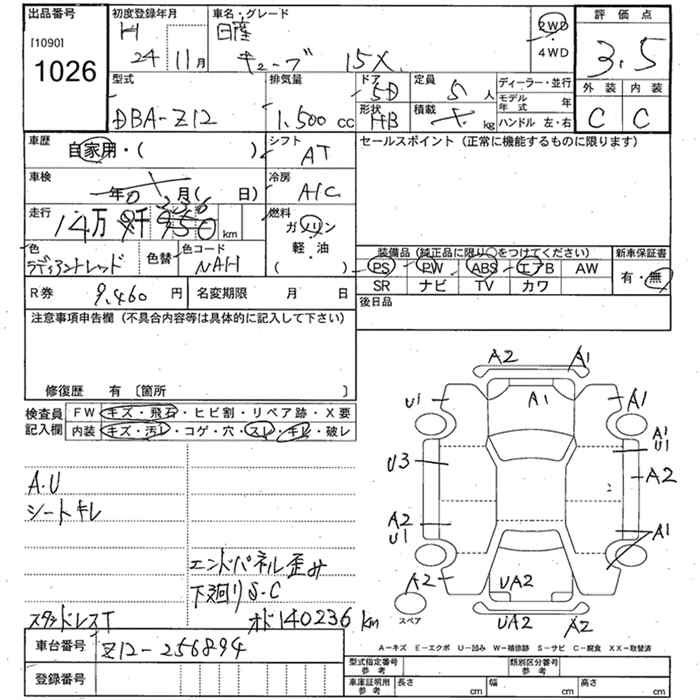 出品番号
[1090]
1026
初度登録年月
H
24 11月
車名・グレード
日産
キューブ 15X
2WD
・
4WD
評価点
3.5
外装 内装
C C
型式
DBA-Z12
排気量
1,500 cc
ドア
5D
形状
HB
定員
5 人
積載
kg
ディーラー・並行
モデル年式 年
ハンドル 左・右
車歴
自家用・( )
シフト
AT
セールスポイント (正常に機能するものに限ります)
車検
年 月( 日)
冷房
A/C
走行
14万 千 km
236
燃料
ガソリン
・
軽・油
( )
色
ラディアントレッド
色替
色コード
NAH
装備品 (純正品に限り○をつけてください)
PS PW ABS エアB AW
SR ナビ TV カワ
新車保証書
有・無
R券 9,460 円
名変期限 月 日
後日品
注意事項申告欄 (不具合内容等は具体的に記入して下さい)
修復歴 有 〔箇所 〕
検査員記入欄
FW キズ・飛石・ヒビ割・リペア跡・X要
内装 キズ・汚レ・コゲ・穴・スレ・キレ・破レ
A.U
シートキレ
エンドパネル歪み
下廻りS・C
スタッドレスT
オド140236km
A2 A1
U1 A1 A1
A1
U1
U3 A2
A2
U1 A1
A2 UA2
スペア UA2 A2
A-キズ E-エクボ U-凹み W-補修跡 S-サビ C-腐食 XX-取替済
車台番号 Z12-256894
登録番号
型式指定番号
参考
類別区分番号
参考
車庫証明用
参考
長さ cm 幅 cm 高さ cm